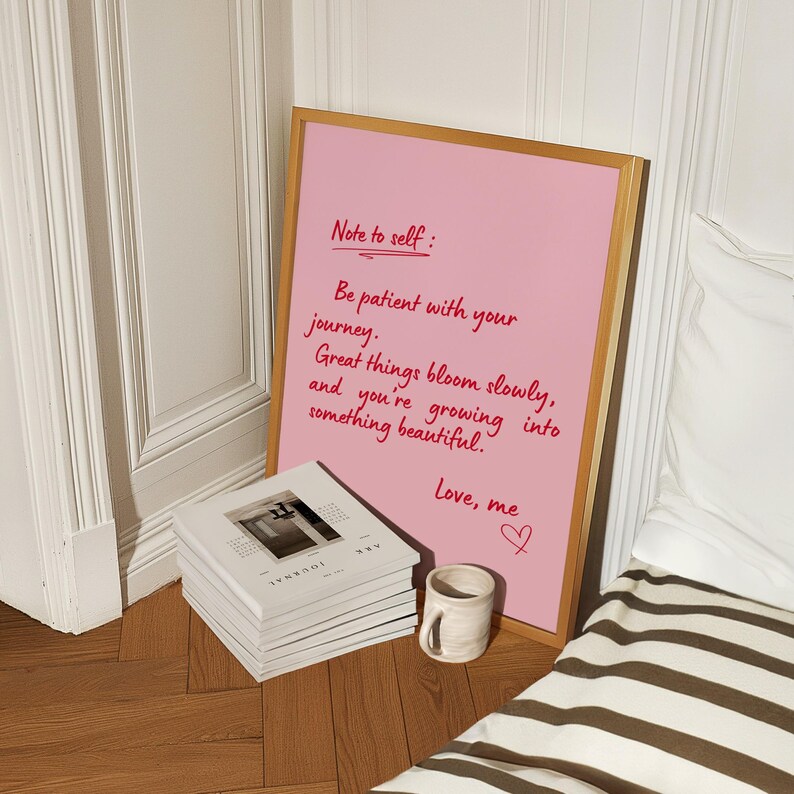 Note to self :
Be patient with your
journey.
Great things bloom slowly,
and you're growing into
something beautiful.
Love, me
ARK
JOURNAL